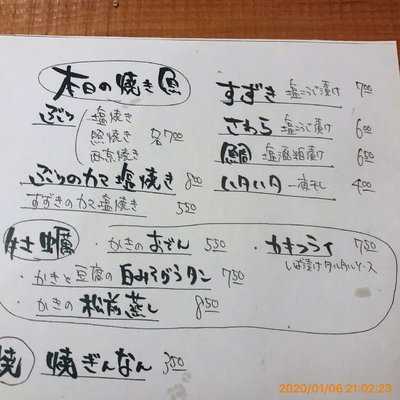 本日の焼き魚
ぶり 塩焼き
照焼き 各700
西京焼き
ぶりのカマ塩焼き 800
すずきのカマ塩焼き 550
すずき 塩こうじ漬け 700
さわら 塩こうじ漬け 600
鯛 塩酒粕漬け 650
ハタハタ 一夜干し 400
牡蠣
・かきのおでん 550
・カキフライ 750
しば漬けタルタルソース
・かきと豆腐の白みそグラタン 750
・かきの松前蒸し 850
焼 焼ぎんなん 350
2020/01/06 21:02:23